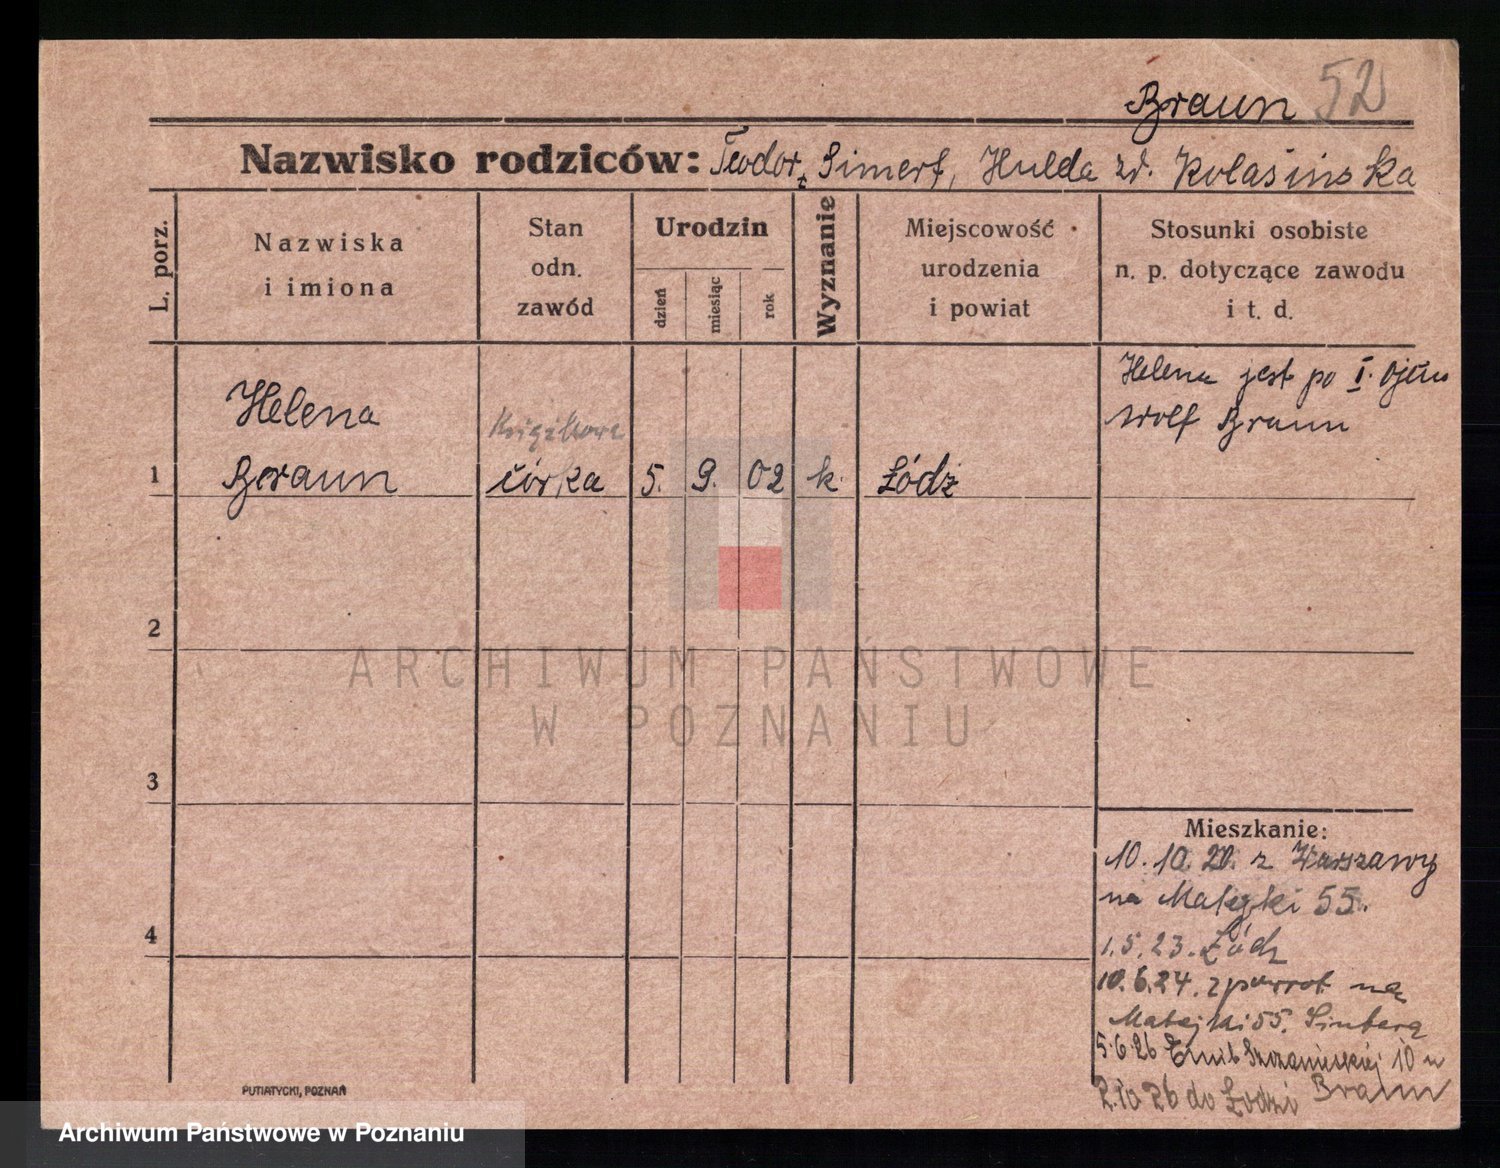 Braun 52
Nazwisko rodziców: Teodor Simert, Hulda zd. Kolasińska
L. porz.
Nazwiska
i imiona
Stan
odn.
zawód
Urodzin
dzień
miesiąc
rok
Wyznanie
Miejscowość
urodzenia
i powiat
Stosunki osobiste
n. p. dotyczące zawodu
i t. d.
Helena jest po I. ojcu
Wolf Braun
Helena
Książkowa
1 Braun córka 5. 9. 02 k. Łódź
2
ARCHIWUM PAŃSTWOWE
W POZNANIU
3
Mieszkanie:
10. 10. 20. z Warszawy
na Matejki 55.
4
1.5.23. Łódz
10.6.24. zpowrot na
Matejki 55.
5.6.26 Emil. Szczanieckiej 10 u
Braun
2.10 26 do Łodzi
PUTIATYCKI, POZNAŃ
Archiwum Państwowe w Poznaniu